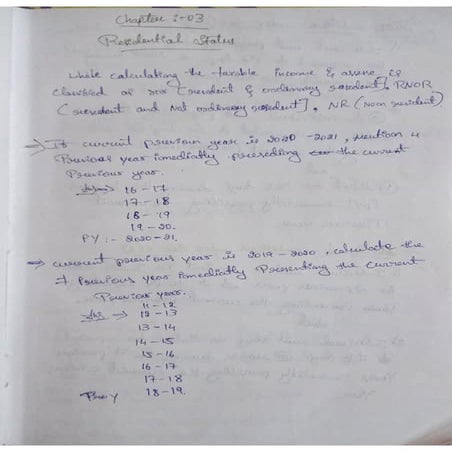 Chapter :- 03
Residential Status
while calculating the taxable income of assess. is
classified as ROR [resident & ordinary resident], RNOR
[resident and Not ordinary resident], NR (Non resident)
→ If current previous year is 2020 - 2021, mention 4
Previous year immediatly preceeding the current
Previous year.
Ans → 16 - 17
17 - 18
18 - 19
19 - 20.
PY :- 2020-21.
→ current previous year is 2019 - 2020, calculate the
7 Previous year immediatly Presenting the current
Previous year.
11 - 12
Ans → 12 - 13
13 - 14
14 - 15
15 - 16
16 - 17
17 - 18
18 - 19.